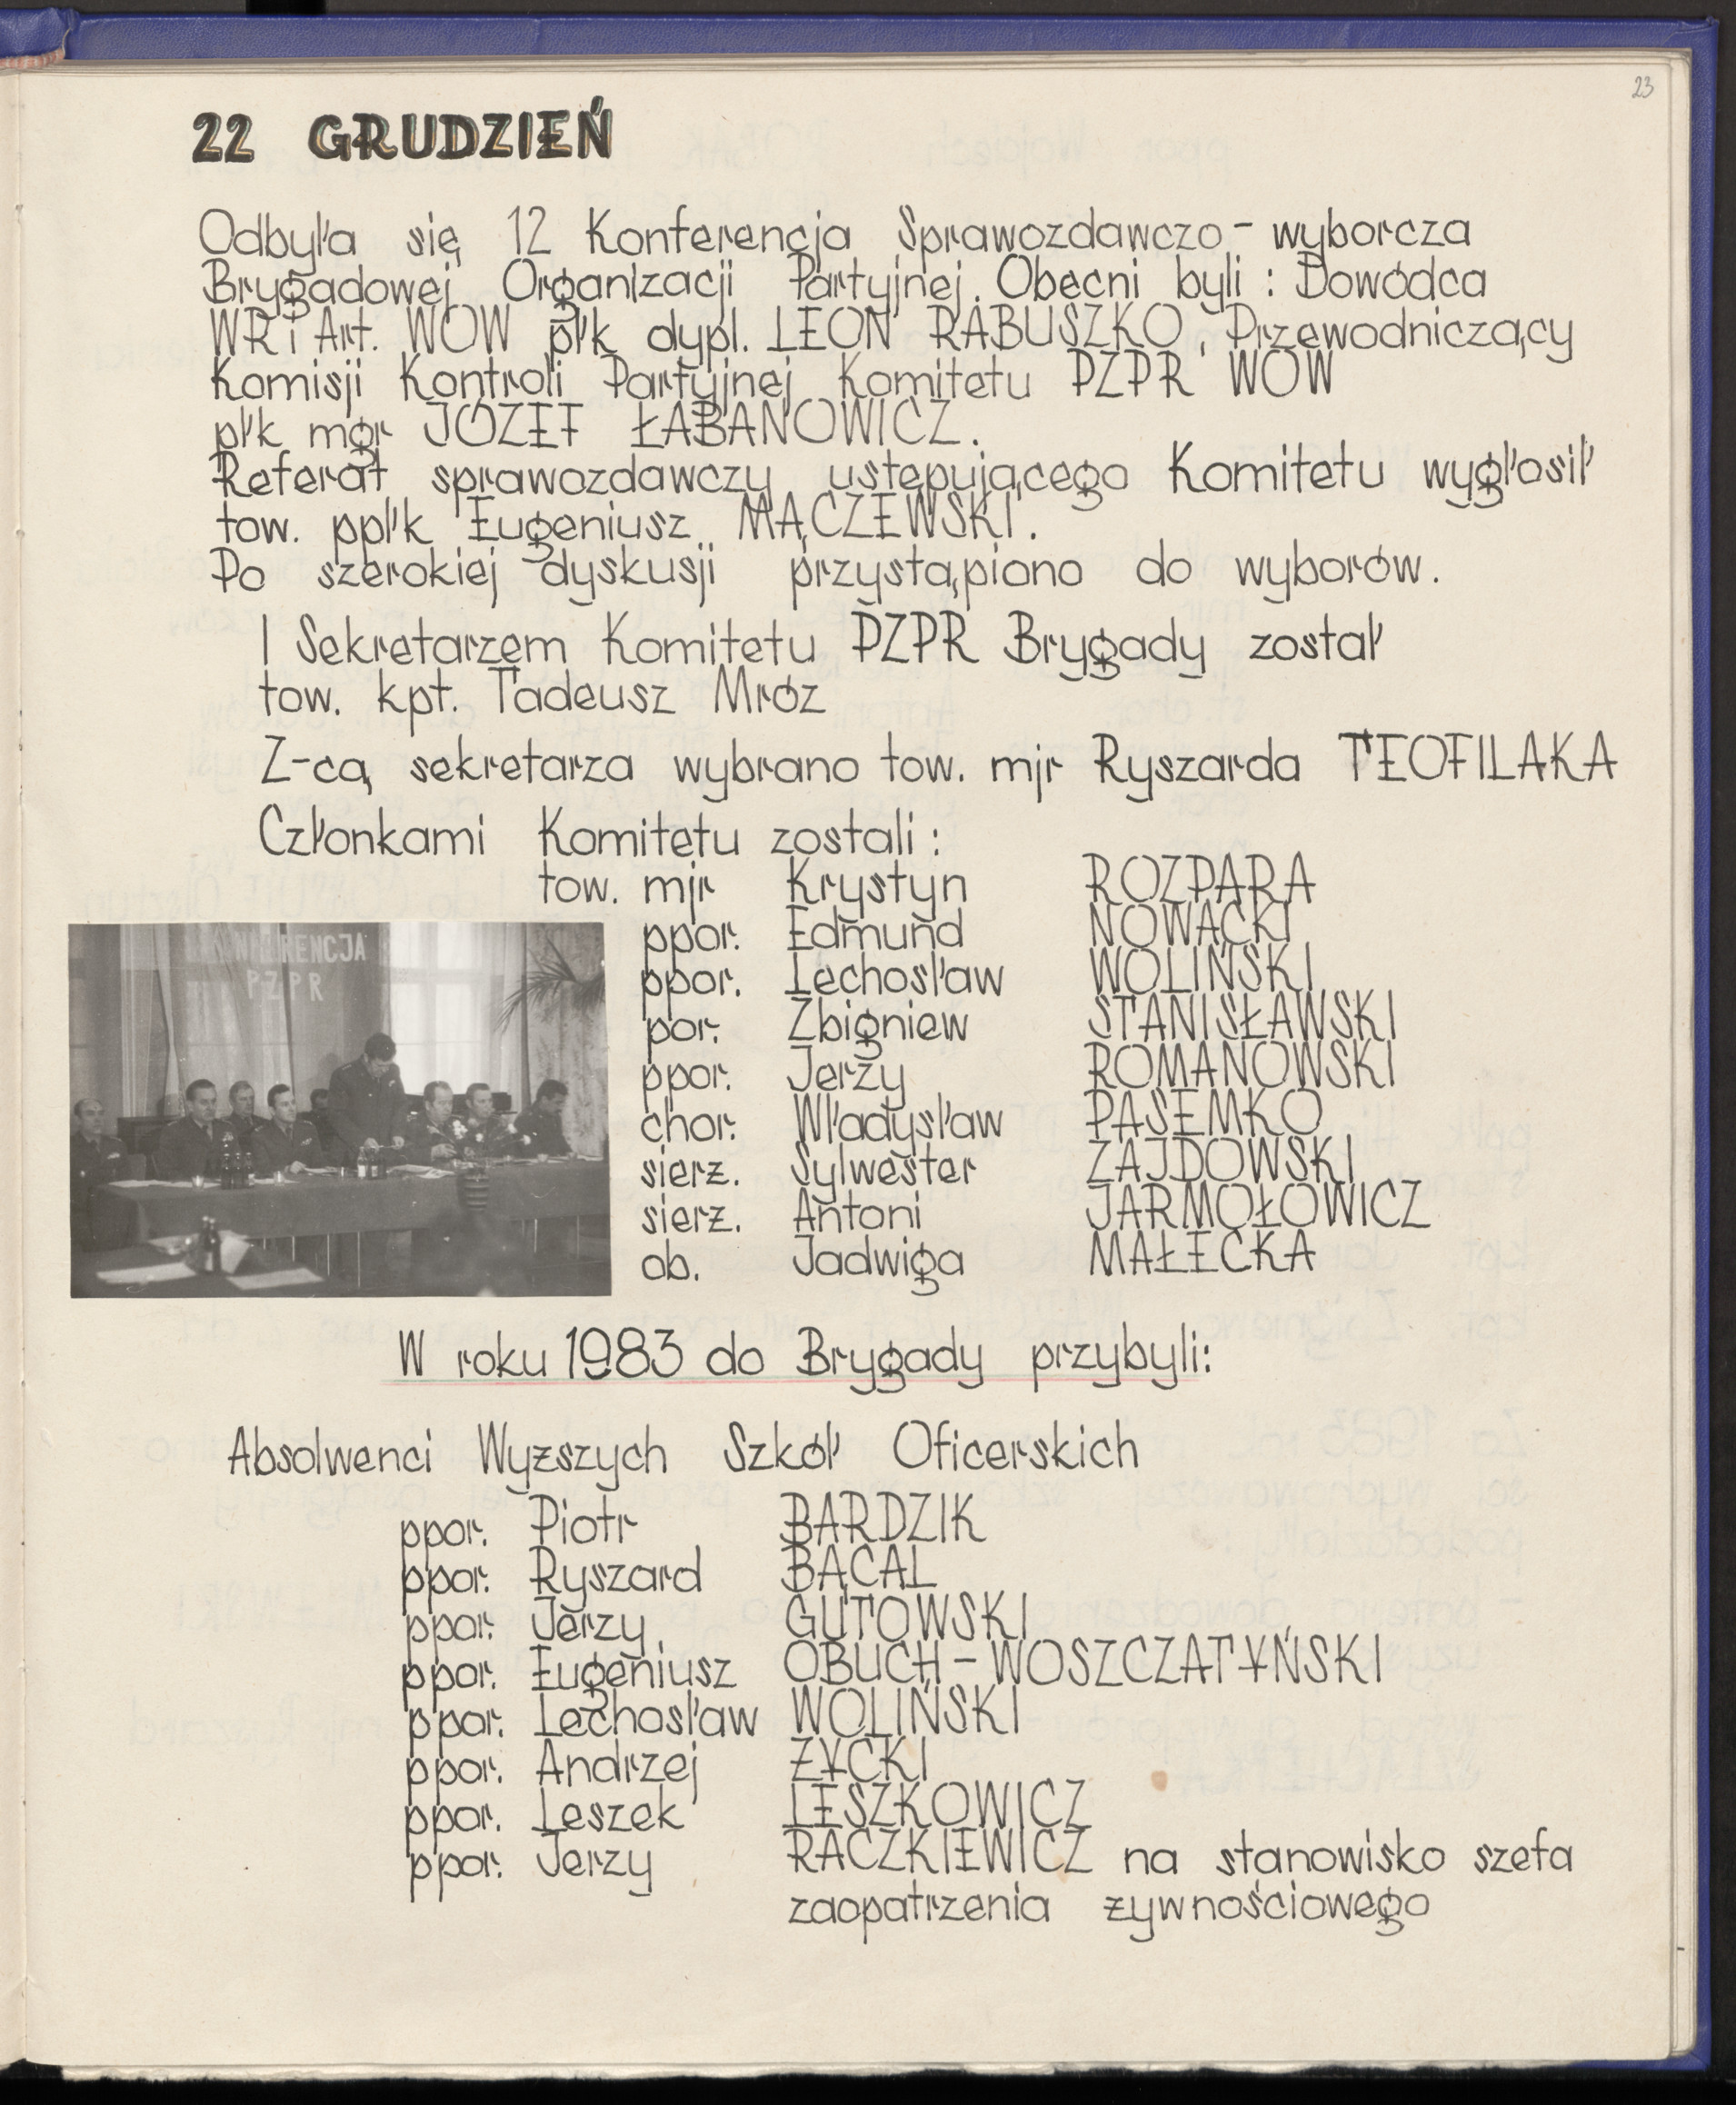 23
22 GRUDZIEŃ
Odbyła się 12 Konferencja Sprawozdawczo-wyborcza
Brygadowej Organizacji Partyjnej. Obecni byli: Dowódca
WR i Art. WOW płk dypl. LEON RABUSZKO, Przewodniczący
Komisji Kontroli Partyjnej Komitetu PZPR WOW
płk mgr JÓZEF ŁABANOWICZ.
Referat sprawozdawczy ustępującego Komitetu wygłosił
tow. ppłk Eugeniusz MĄCZEWSKI.
Po szerokiej dyskusji przystąpiono do wyborów.
I Sekretarzem Komitetu PZPR Brygady został
tow. kpt. Tadeusz Mróz
Z-cą sekretarza wybrano tow. mjr Ryszarda TEOFILAKA
Członkami Komitetu zostali:
tow. mjr Krystyn ROZPARA
ppor. Edmund NOWACKI
ppor. Lechosław WOLIŃSKI
por. Zbigniew STANISŁAWSKI
ppor. Jerzy ROMANOWSKI
chor. Władysław PASEMKO
sierz. Sylwester ZAJDOWSKI
sierz. Antoni JARMOŁOWICZ
ob. Jadwiga MAŁECKA
KONFERENCJA
PZPR
W roku 1983 do Brygady przybyli:
Absolwenci Wyższych Szkół Oficerskich
ppor. Piotr BARDZIK
ppor. Ryszard BĄCAL
ppor. Jerzy GUTOWSKI
ppor. Eugeniusz OBUCH-WOSZCZATYŃSKI
ppor. Lechosław WOLIŃSKI
ppor. Andrzej ŻYCKI
ppor. Leszek LESZKOWICZ
ppor. Jerzy RACZKIEWICZ na stanowisko szefa
zaopatrzenia żywnościowego